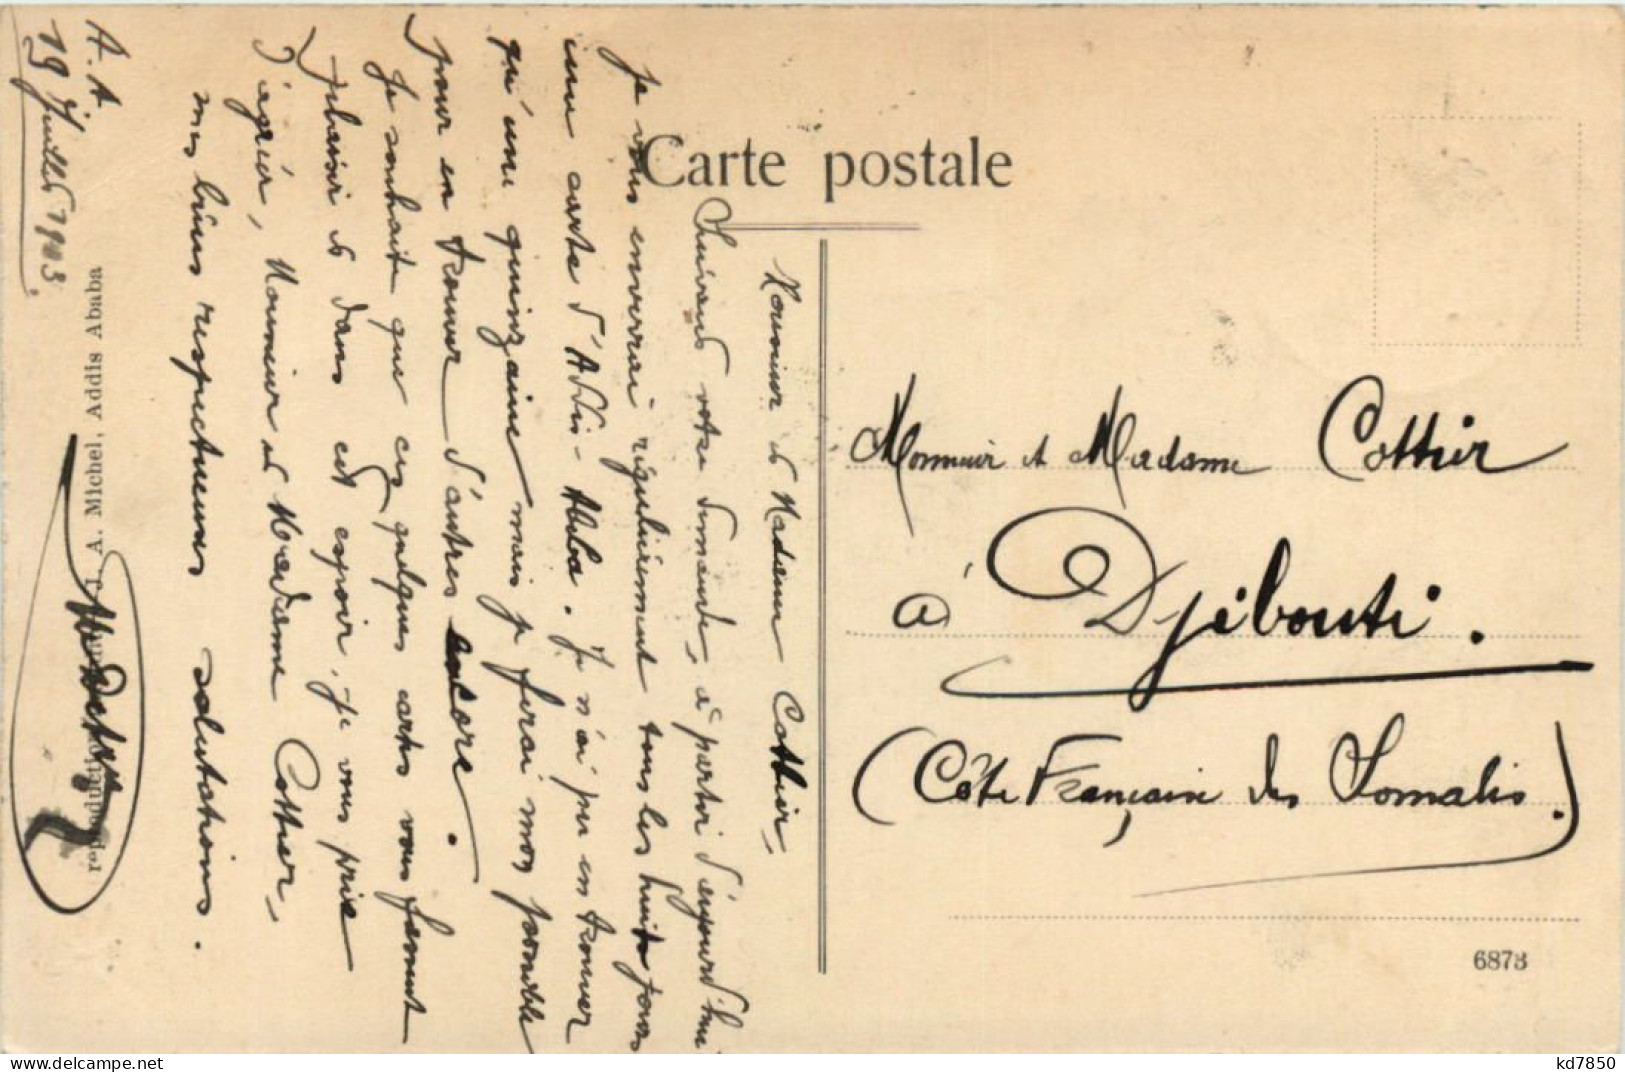 Carte postale
Monsieur et Madame Cottier,
Suivant votre demande, à partir d'aujourd'hui
je vous enverrai régulièrement tous les huit jours
une carte d'Addis-Abeba. Je n'ai pu en trouver
qu'une quinzaine mais je ferai mon possible
pour en trouver d'autres encore.
Je souhaite que ces quelques cartes vous fassent
plaisir et dans cet espoir, je vous prie
d'agréer, Monsieur et Madame Cottier,
mes biens respectueuses salutations.
A. A.
19 Juillet 1903.
J. A. Michel, Addis Ababa
Monsieur et Madame Cottier
à Djibouti.
(Côte Française des Somalis.)
6873
kd7850